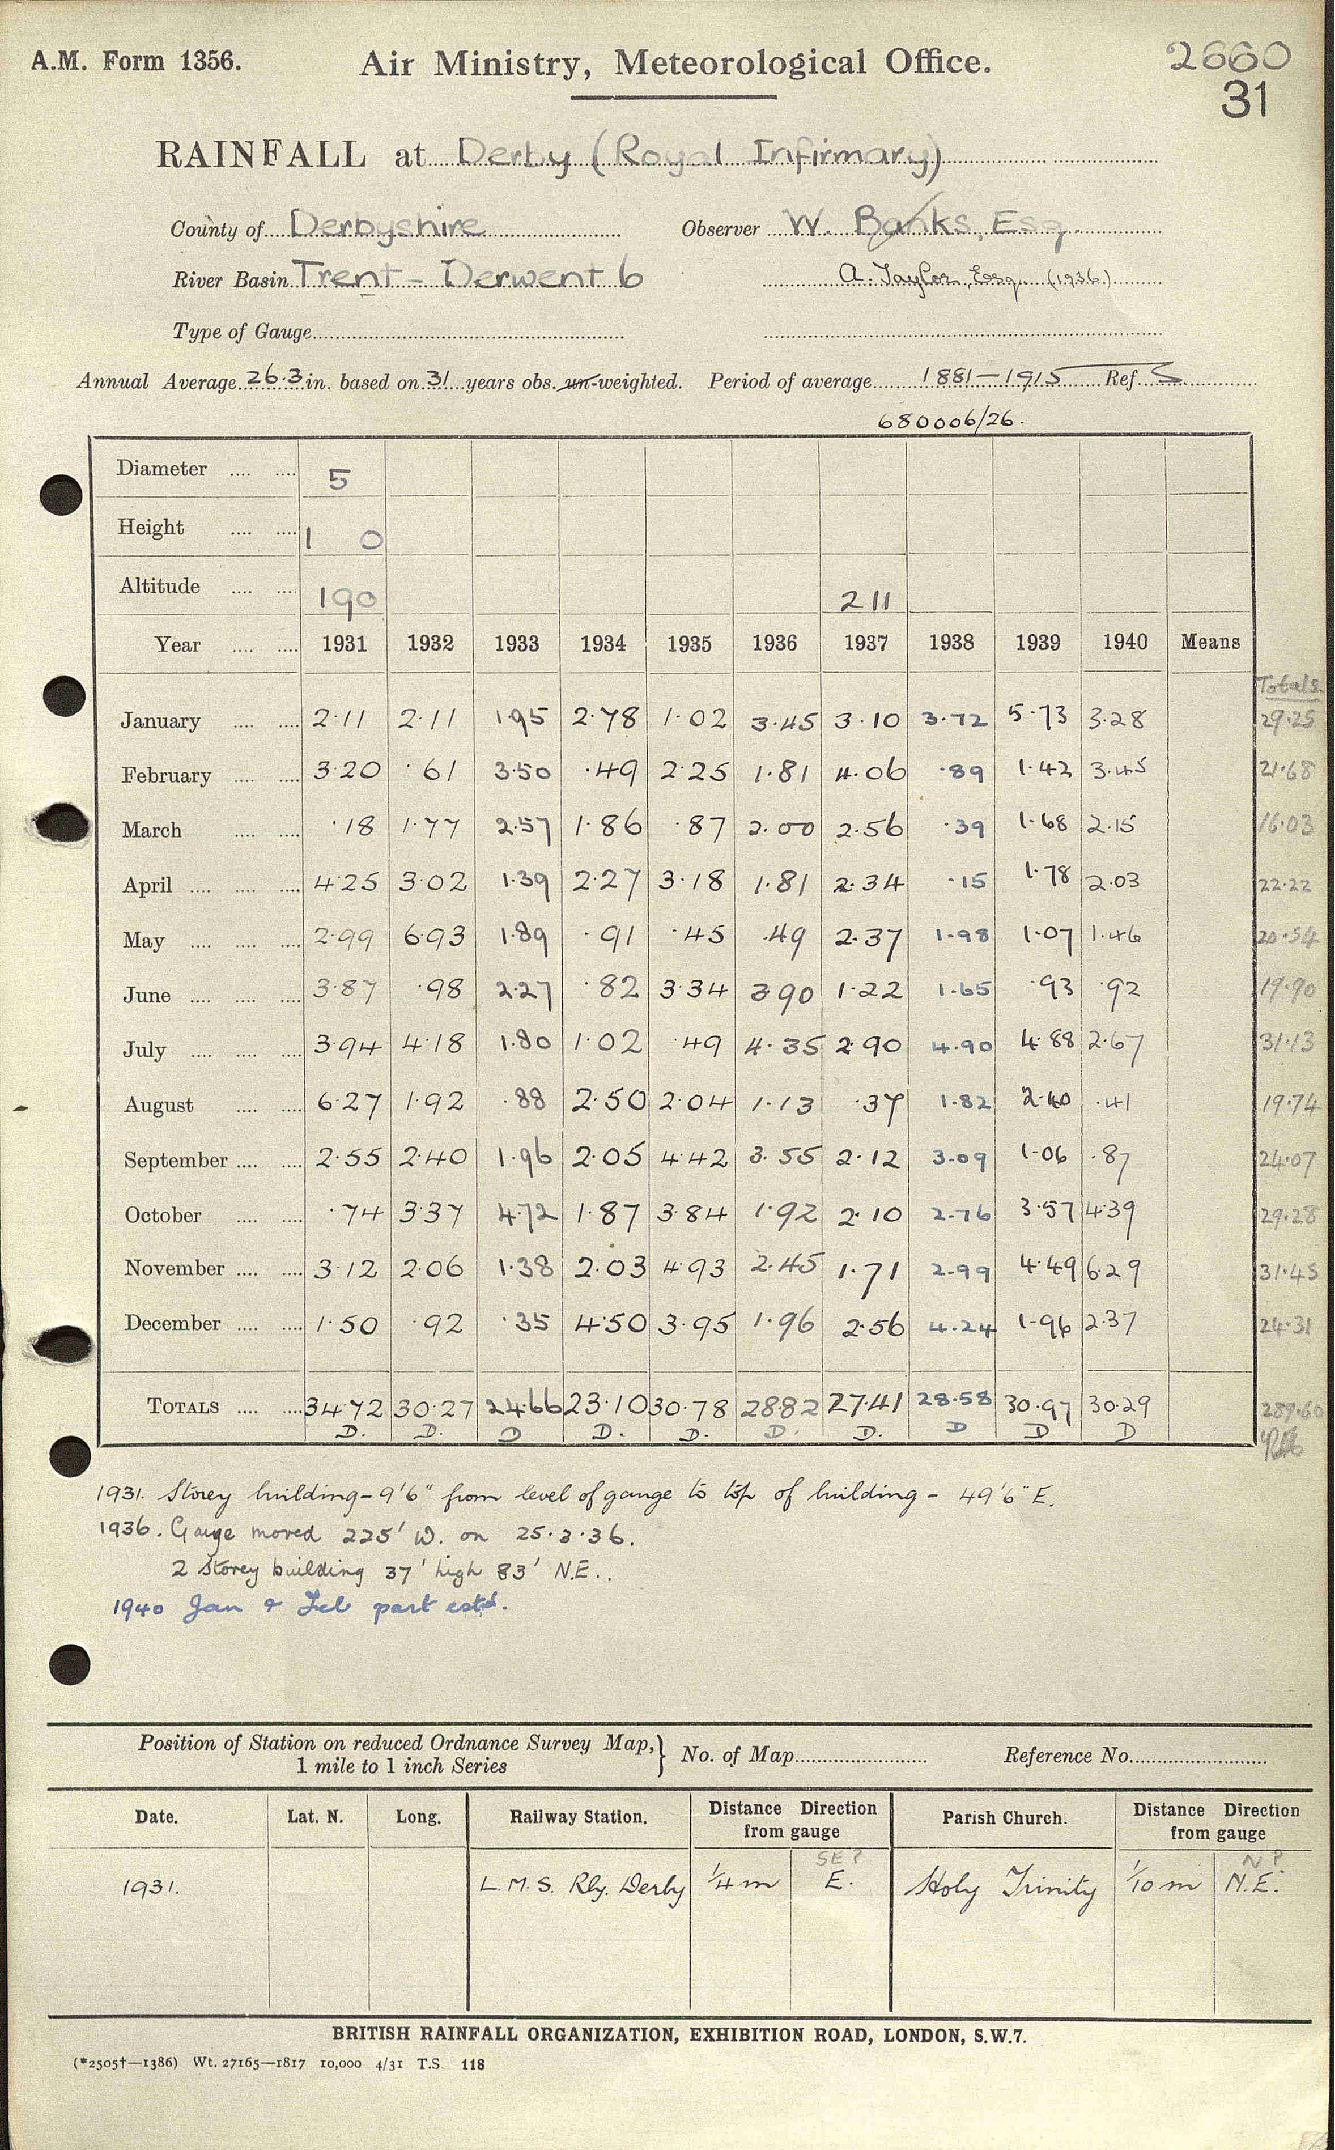 A.M. Form 1356. Air Ministry, Meteorological Office. 2660
31
RAINFALL at Derby (Royal Infirmary)
County of Derbyshire Observer W. Banks, Esq
River Basin Trent - Derwent 6 A. Taylor, Esq. (1936.)
Type of Gauge
Annual Average 26.3 in. based on 31 years obs. un-weighted. Period of average 1881-1915 Ref. S
680006/26.
Diameter 5
Height 1 0
Altitude 190 211
Year 1931 1932 1933 1934 1935 1936 1937 1938 1939 1940 Means
Totals
January 2.11 2.11 1.95 2.78 1.02 3.45 3.10 3.72 5.73 3.28 29.25
February 3.20 .61 3.50 .49 2.25 1.81 4.06 .89 1.42 3.45 21.68
March .18 1.77 2.57 1.86 .87 2.00 2.56 .39 1.68 2.15 16.03
April 4.25 3.02 1.39 2.27 3.18 1.81 2.34 .15 1.78 2.03 22.22
May 2.99 6.93 1.89 .91 .45 .49 2.37 1.98 1.07 1.46 20.54
June 3.87 .98 2.27 .82 3.34 3.90 1.22 1.65 .93 .92 19.90
July 3.94 4.18 1.80 1.02 .49 4.35 2.90 4.90 4.88 2.67 31.13
August 6.27 1.92 .88 2.50 2.04 1.13 .37 1.82 2.40 .41 19.74
September 2.55 2.40 1.96 2.05 4.42 3.55 2.12 3.09 1.06 .87 24.07
October .74 3.37 4.72 1.87 3.84 1.92 2.10 2.76 3.57 4.39 29.28
November 3.12 2.06 1.38 2.03 4.93 2.45 1.71 2.99 4.49 6.29 31.45
December 1.50 .92 .35 4.50 3.95 1.96 2.56 4.24 1.96 2.37 24.31
TOTALS 34.72 30.27 24.66 23.10 30.78 28.82 27.41 28.58 30.97 30.29 289.60
D. D. D D. D. D. D. D D D
1931. Storey building - 9'6" from level of gauge to top of building - 49'6" E.
1936. Gauge moved 225' W. on 25.3.36.
2 Storey building 37' high 83' N.E..
1940 Jan & Feb part estd.
Position of Station on reduced Ordnance Survey Map,} No. of Map Reference No.
1 mile to 1 inch Series
Date. Lat. N. Long. Railway Station. Distance Direction from gauge Parish Church. Distance Direction from gauge
SE? N?
1931. L.M.S. Rly. Derby 1/4 m E. Holy Trinity 1/10 m N.E.
BRITISH RAINFALL ORGANIZATION, EXHIBITION ROAD, LONDON, S.W.7.
(*2505†—1386) Wt. 27165—1817 10,000 4/31 T.S. 118